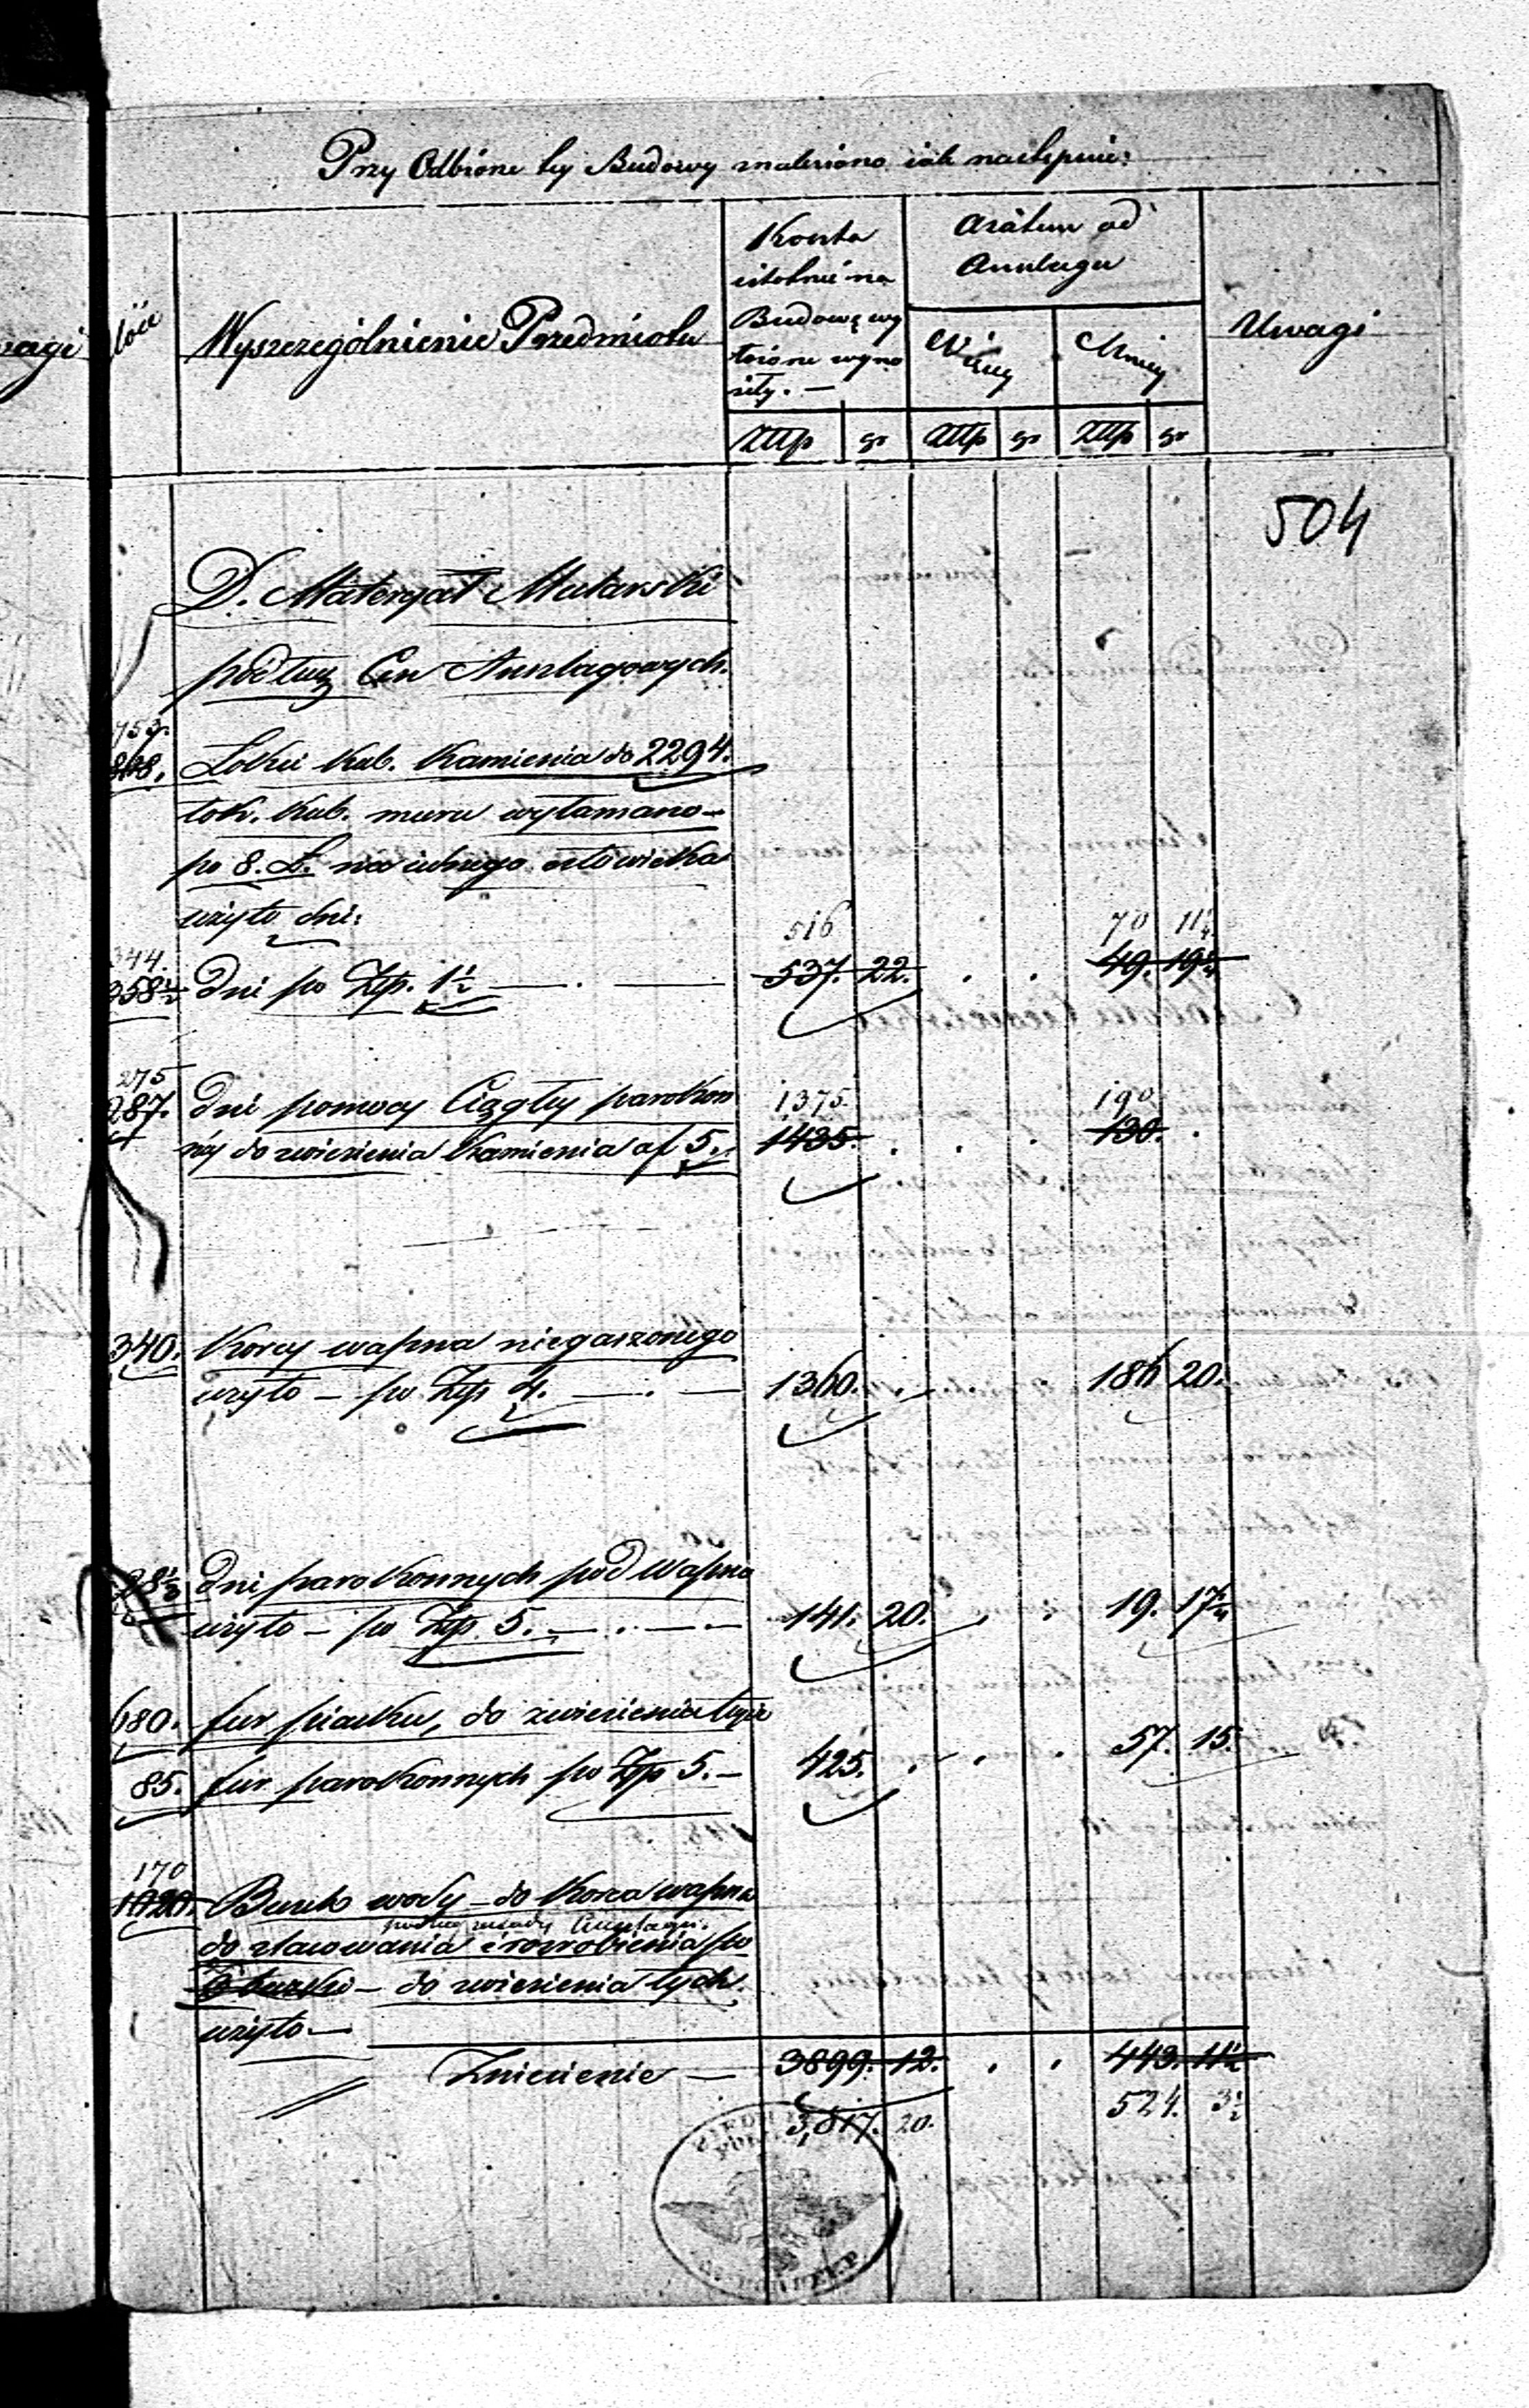 Przy Odbiorze tey Budowy znaleziono iak następuie:
Ilość
Wyszczególnienie Przedmiotu
Koszta
istotnie na
Budowę wy
łożone wyno
siły. —
a zatem od
Anszlagu
Więcey
Mniey
Uwagi
Złłp gr Złłp gr Złłp gr
504
D. Materyał Mularski
podług Cen Anszlagowych.
753.
Łokci kub. Kamienia do 2294.
łok. kub. muru wyłamano —
po 8. Ł. na iednego człowieka
użyto dni:
516 70 11¼
344.
358½ Dni po Złp. 1½ — . — 537. 22. . . 49. 19¼
275
287. Dni pomocy Ciągłey parokon 1375. 190
néy do zwiezienia Kamienia af 5. 1435. . . . 130. .
340. Korcy wapna niegaszonego
użyto — po Złp 4. — . — 1360. . . . 186 20.
28⅓ Dni parokonnych pod Wapno
użyto — po Złp. 5. — . — 141. 20. . . 19. 17¼
680. fur piasku, do zwiezienia tegoż
85. fur parokonnych po Złp 5. — 425. . . . 57. 15.
170
1020. Beczek wody — do Korca wapna
podług zasady Anszlagu.
do zlasowania i rozrobienia po
6 beczki — do zwiezienia tych.
użyto —
Zniesienie — 3899. 12. . . 443. 11½
3,817. 20. 524. 3½